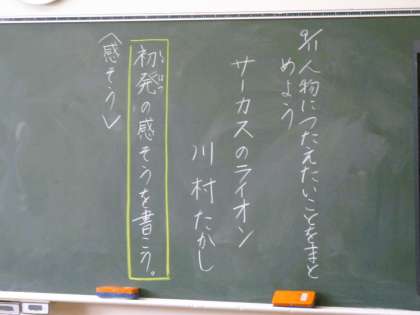 9/1 人物につたえたいことをまと
めよう
サーカスのライオン
川村たかし
初発の感そうを書こう。
しょはつ
〈感そう〉